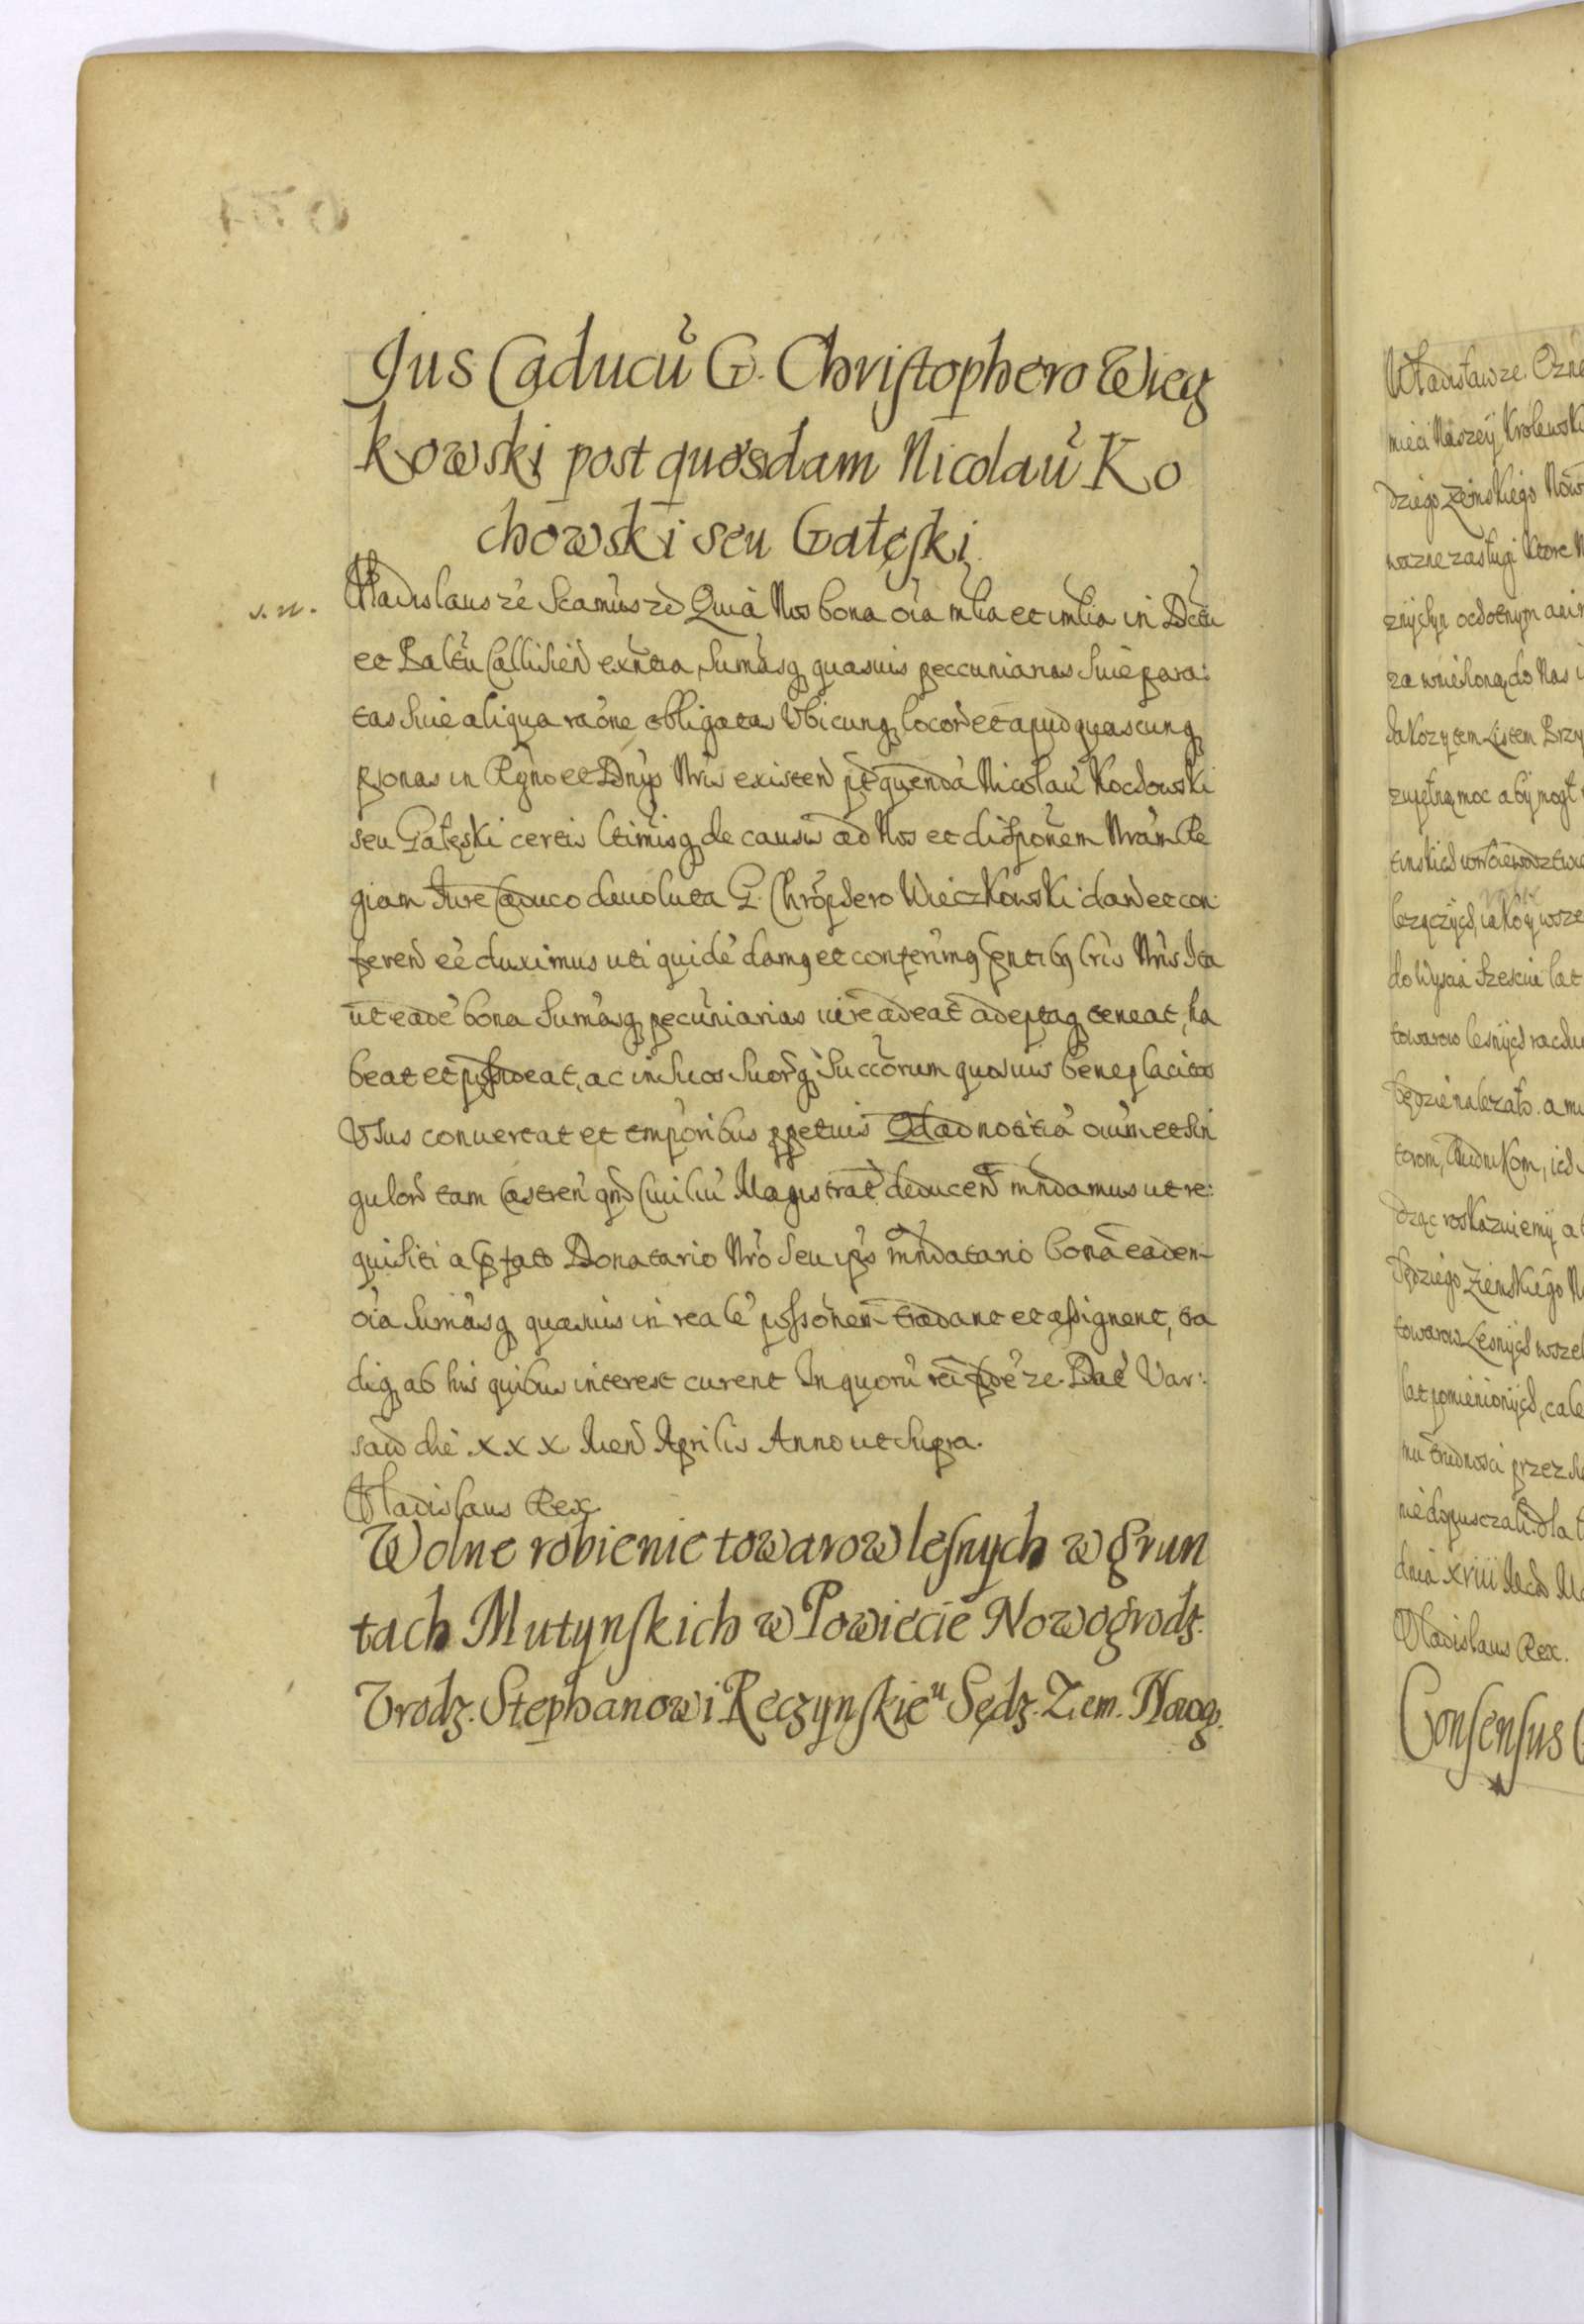 Jus Caducũ G. Christophero Więcz
kowski post quosdam Nicolaũ Ko
chowski seu Gałęski
s. n.
Vladislaus zc Scamus zc Quia Nos bona oĩa mlia et imlia in Dctu
et Paltũ Callisien̄ exñtia, Sumasq quasuis peccuniarias siue para:
tas siue aliqua raõne obligatas Vbicunq locor et apud quascunq
psonas in Rgno et Dnys Nris existen̄ pt quendã Nicolaũ Kochowski
seu Gałęski certis ltimisq de causis ad Nos et disponem Nram Re
giam Jure Caduco deuoluta G. Chrophero Wieczkowski dand et con
feren̄ eẽ duximus uti quidẽ damq et conferimq pntibq lris Nris Ita
ut eadẽ bona Sumasq pecuniarias iure adeat adeptaq teneat, ha
beat et possideat, ac in suos suorq Succorum quosuis beneplacitos
Vsus conuertat et temporibus ppetuis Qd ad notitiã oium et sin
gulor tam Castren̄ qm Ciuiliũ Magistrat deducen̄ mndamus ut re:
quisiti a pfato Donatario Nro seu ips mndatario bona eadem
oĩa sumasq quasuis in realẽ possonem tradant et assignent, tra
diq ab his quibus interest curent In quorũ rei fidẽ zc. Dat Var:
saw die XXX Men̄ Aprilis Anno ut supra.
Vladislaus Rex
Wolne robienie towarow lesnych w grun
tach Mutynskich w Powiecie Nowogrodz.
Vrodz. Stephanowi Reczynskieᵘ Sędz. Zem. Nowog.
Vladisław zc. Ozna
mieci Naszey Krolewski
dziego Zemskiego Now
wazne zasługi ktore N
za wniesioną do Nas i
zupełną moc aby mogł
lezączych, iako y wsze
do Wyscia szesciu lat
towarow lesnych rachu
będzie nalezało. a mi
torom, Rudnikom, ich
dząc roskazuiemy a
Sędziego Ziemskiego N
towarow Lesnych wszel
lat pomienionych, cale
nu trudnosci przez Su
nie dopusczali. dla l
dnia XVIII Mca Ma
Vladislaus Rex.
Consensus